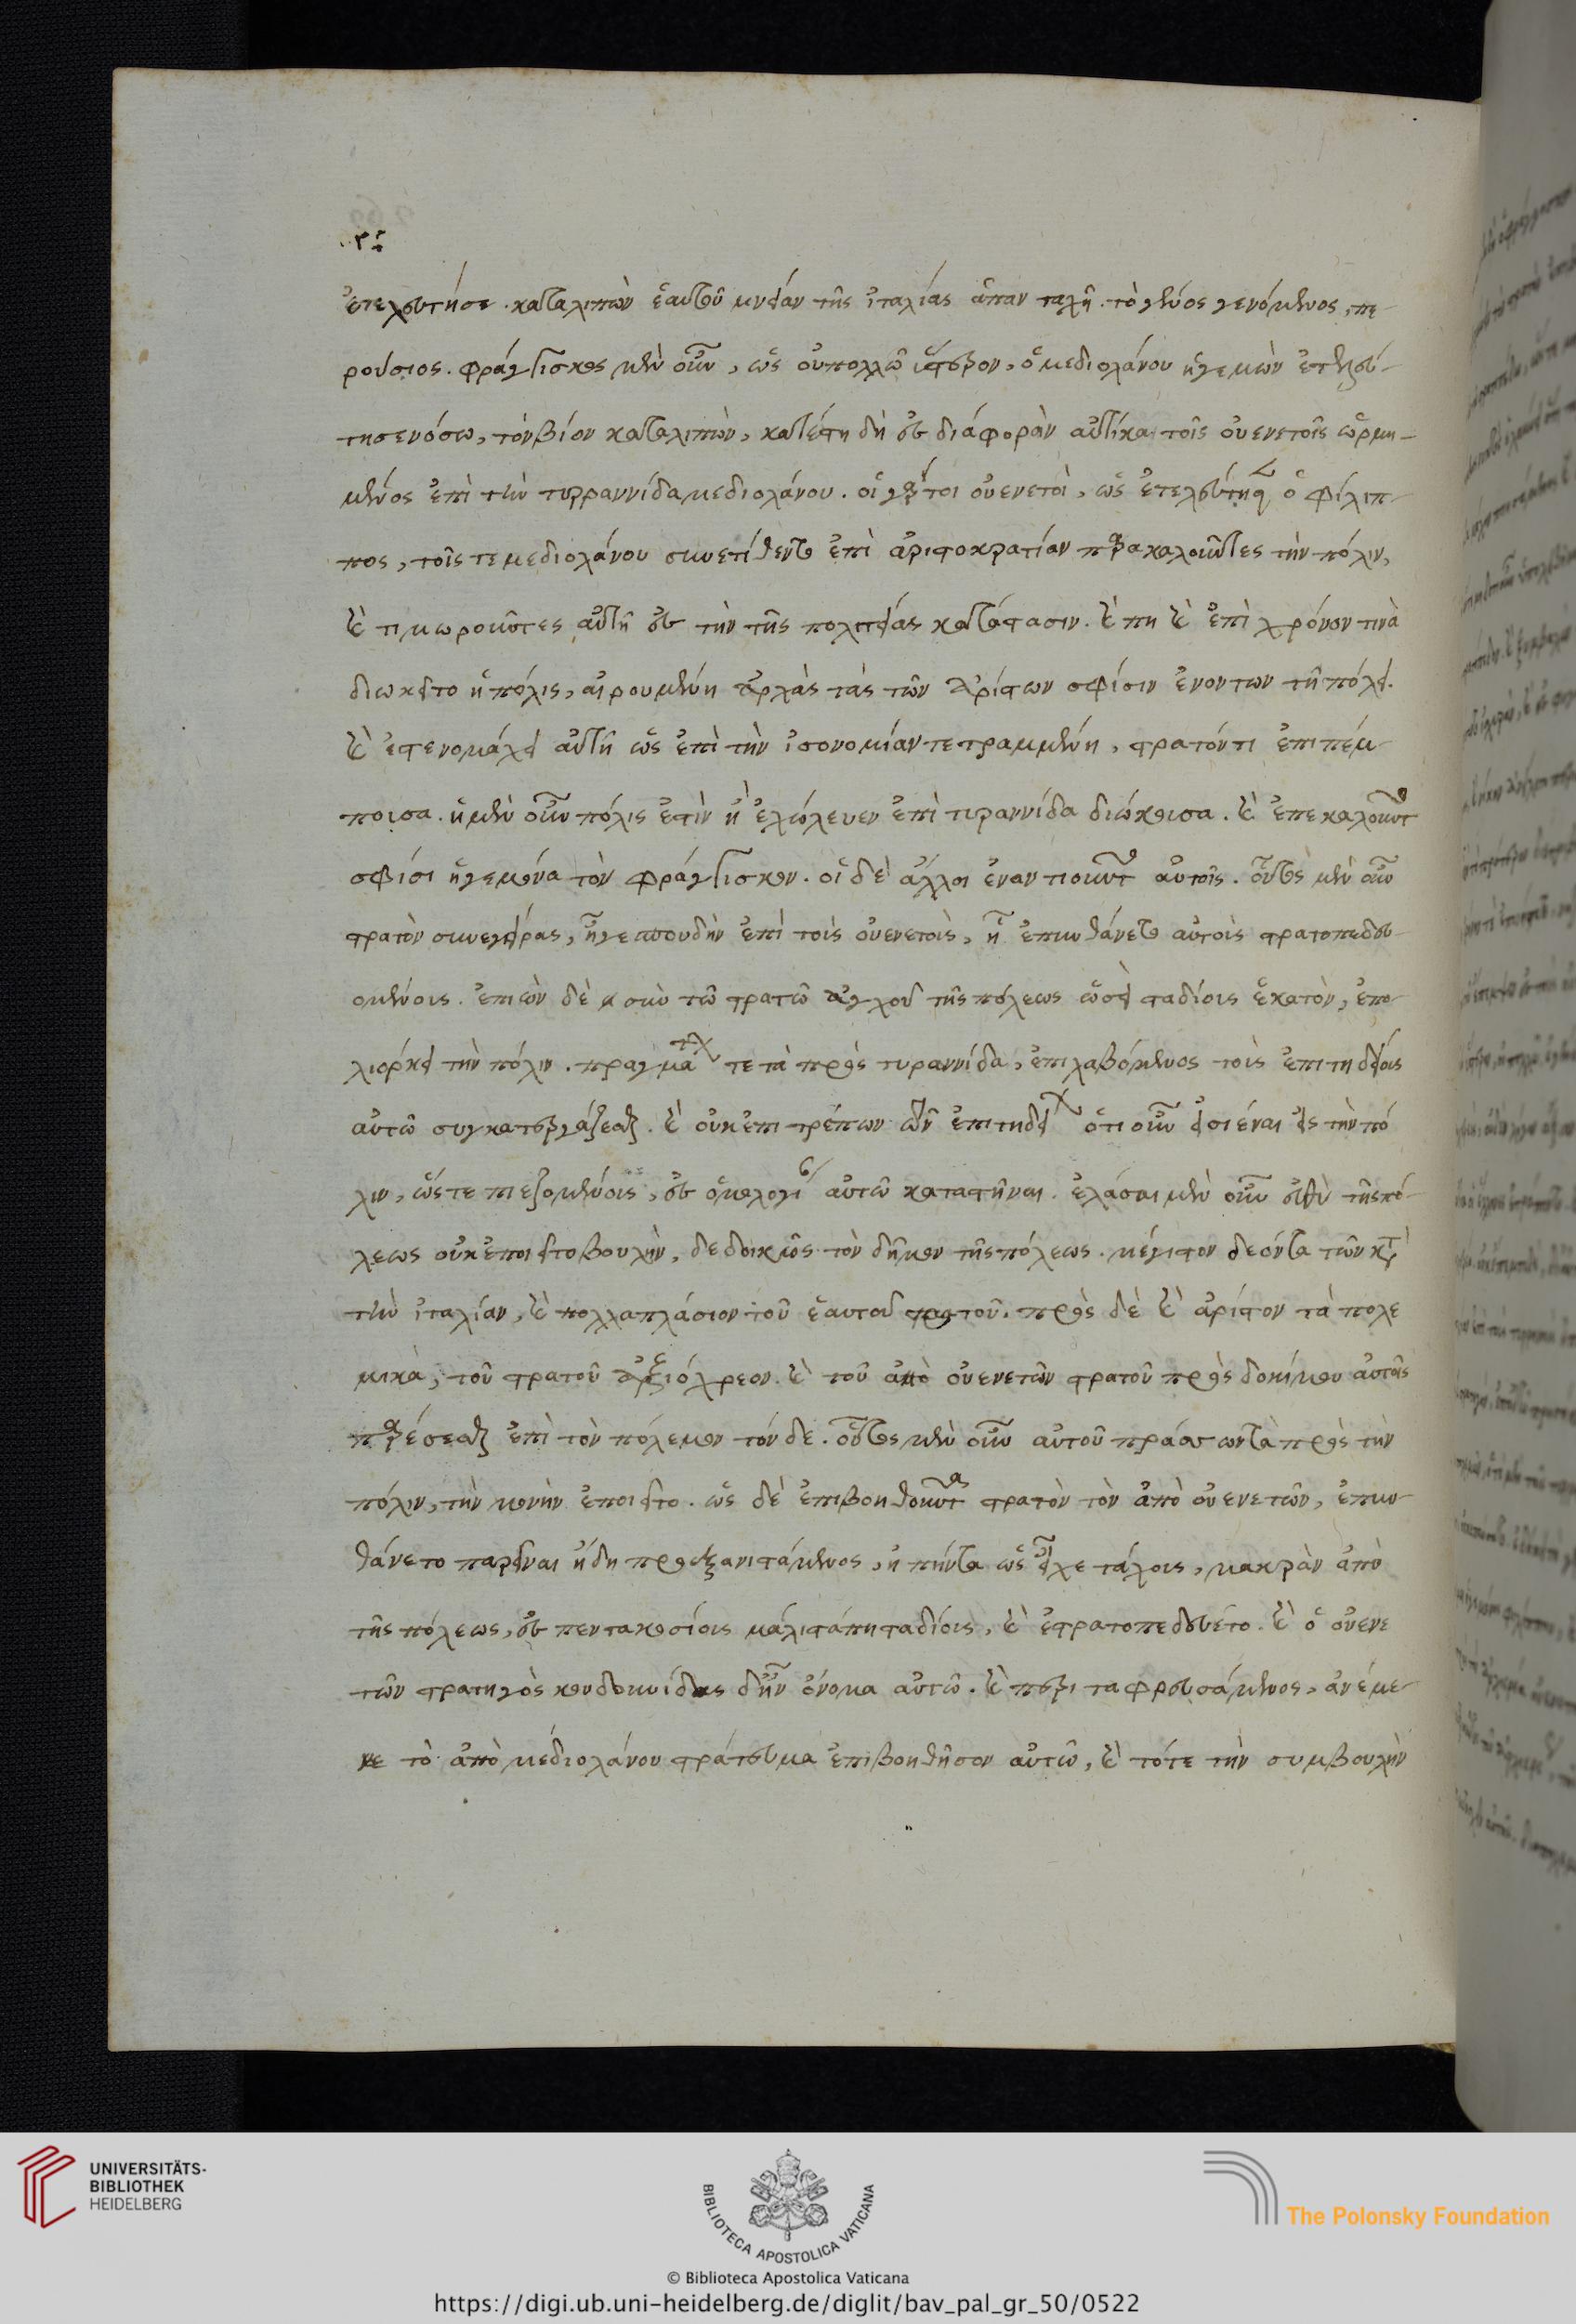 ἐτελεύτησε. καταλιπὼν ἑαυτοῦ μνείαν τῆς ἰταλίας ἁπανταχῆ. τὸ γένος γενόμενος, πε-
ρούσιος. φράγτισκος μὲν οὖν, ὡς οὐ πολλῶ ὕστερον, ὁ μεδιολάνου ἡγεμὼν ἐτελεύ-
τησε νόσω, τὸν βίον καταλιπὼν, κατέστη δὴ ἐς διάφορὰν αὐτίκα τοῖς οὐενετοῖς ὡρμη-
μένος ἐπὶ τὴν τυρραννίδα μεδιολάνου. οἱ γάρτοι οὐενετοὶ, ὡς ἐτελεύτησεν ὁ φίλιπ-
πος, τοῖς τε μεδιολάνου συνετίθεντο ἐπὶ ἀριστοκρατίαν παρακαλοῦντες τὴν πόλιν,
καὶ τιμωροῦντες αὐτῆ ἐς τὴν τῆς πολιτείας κατάστασιν. καὶ πη καὶ ἐπὶ χρόνον τινὰ
διωκεῖτο ἡ πόλις, αἱρουμένη ἀρχὰς τὰς τῶν ἀρίστων σφίσιν ἐνόντων τῆ πόλει.
καὶ ἐστενομάχει αὐτῆ ὡς ἐπὶ τὴν ἰσονομίαν τετραμμένη, στρατόν τι ἐπιπέμ-
ποισα. ἡ μὲν οὖν πόλις ἐστὶν ἣ ἐλώλευεν ἐπὶ τιραννίδα διώκοισα. καὶ ἐπεκαλοῦντο
σφίσι ἡγεμόνα τὸν φράγτισκον. οἱ δὲ ἄλλοι ἐναντιοῦντο αὐτοῖς. οὗτος μὲν οὖν
στρατὸν συνεγείρας, ἦγε σπουδὴν ἐπὶ τοὶς οὐενετοὶς, ἧ ἐπυνθάνετο αὐτοὶς στρατοπεδευ-
ομένοις. ἐπιὼν δὲ κ σὺν τῶ στρατῶ ἀγχοῦ τῆς πόλεως ὡσεὶ σταδίοις ἑκατὸν, ἐπο-
λιόρκει τὴν πόλιν. πράγματά τε τὰ πρὸς τυραννίδα, ἐπιλαβόμενος τοὶς ἐπιτηδείοις
αὐτῶ συγκατεργάζεσθαι. καὶ οὐκ ἐπιτρέπων τῶν ἐπιτηδείων ὁτιοῦν εἰσιέναι εἰς τὴν πό
λιν, ὥςτε πιεζομένοις, ἐς ὁμολογίαν αὐτῶ καταστῆναι. ἐλάσαι μὲν οὖν εὐθὺ τῆς πό-
λεως οὐκ ἐποιεῖτο βουλὴν, δεδοικὼς τὸν δῆμον τῆς πόλεως. μέγιστον δεόντα τῶν κατὰ
τὴν ἰταλίαν, καὶ πολλαπλάσιον τοῦ ἑαυτοῦ στρατοῦ. πρὸς δὲ καὶ ἀρίστον τὰ πολε
μικὰ, τοῦ στρατοῦ ἀξιόχρεον. καὶ τοῦ ἀπὸ οὐενετῶν στρατοῦ πρὸς δοκίμου αὐτοῖς
παρέσεσθαι ἐπὶ τὸν πόλεμον τόν δε. οὕτως μὲν οὖν αὐτοῦ πράσσωντα πρὸς τὴν
πόλιν, τὴν μονὴν ἐποιεῖτο. ὡς δὲ ἐπιβοηθοῦντα στρατὸν τὸν ἀπὸ οὐενετῶν, ἐπυν-
θάνετο παρεῖναι ἤδη προεξανιστάμενος, ἠπήντα ὡς εἶχε τάχοις, μακρὰν ἀπὸ
τῆς πόλεως, ἐς πεντακοσίοις μάλιστά πη σταδίοις, καὶ ἐστρατοπεδεύετο. καὶ ὁ οὐενε
τῶν στρατηγὸς κονδουμίδας δ' ἦν ὄνομα αὐτῶ. καὶ περι ταφρευσάμενος, ἀνέμε-
νε τὸ ἀπὸ μεδιολάνου στράτευμα ἐπιβοηθῆσον αὐτῶ, καὶ τότε τὴν συμβουλὴν
UNIVERSITÄTS-
BIBLIOTHEK
HEIDELBERG
BIBLIOTECA APOSTOLICA VATICANA
The Polonsky Foundation
© Biblioteca Apostolica Vaticana
https://digi.ub.uni-heidelberg.de/diglit/bav_pal_gr_50/0522